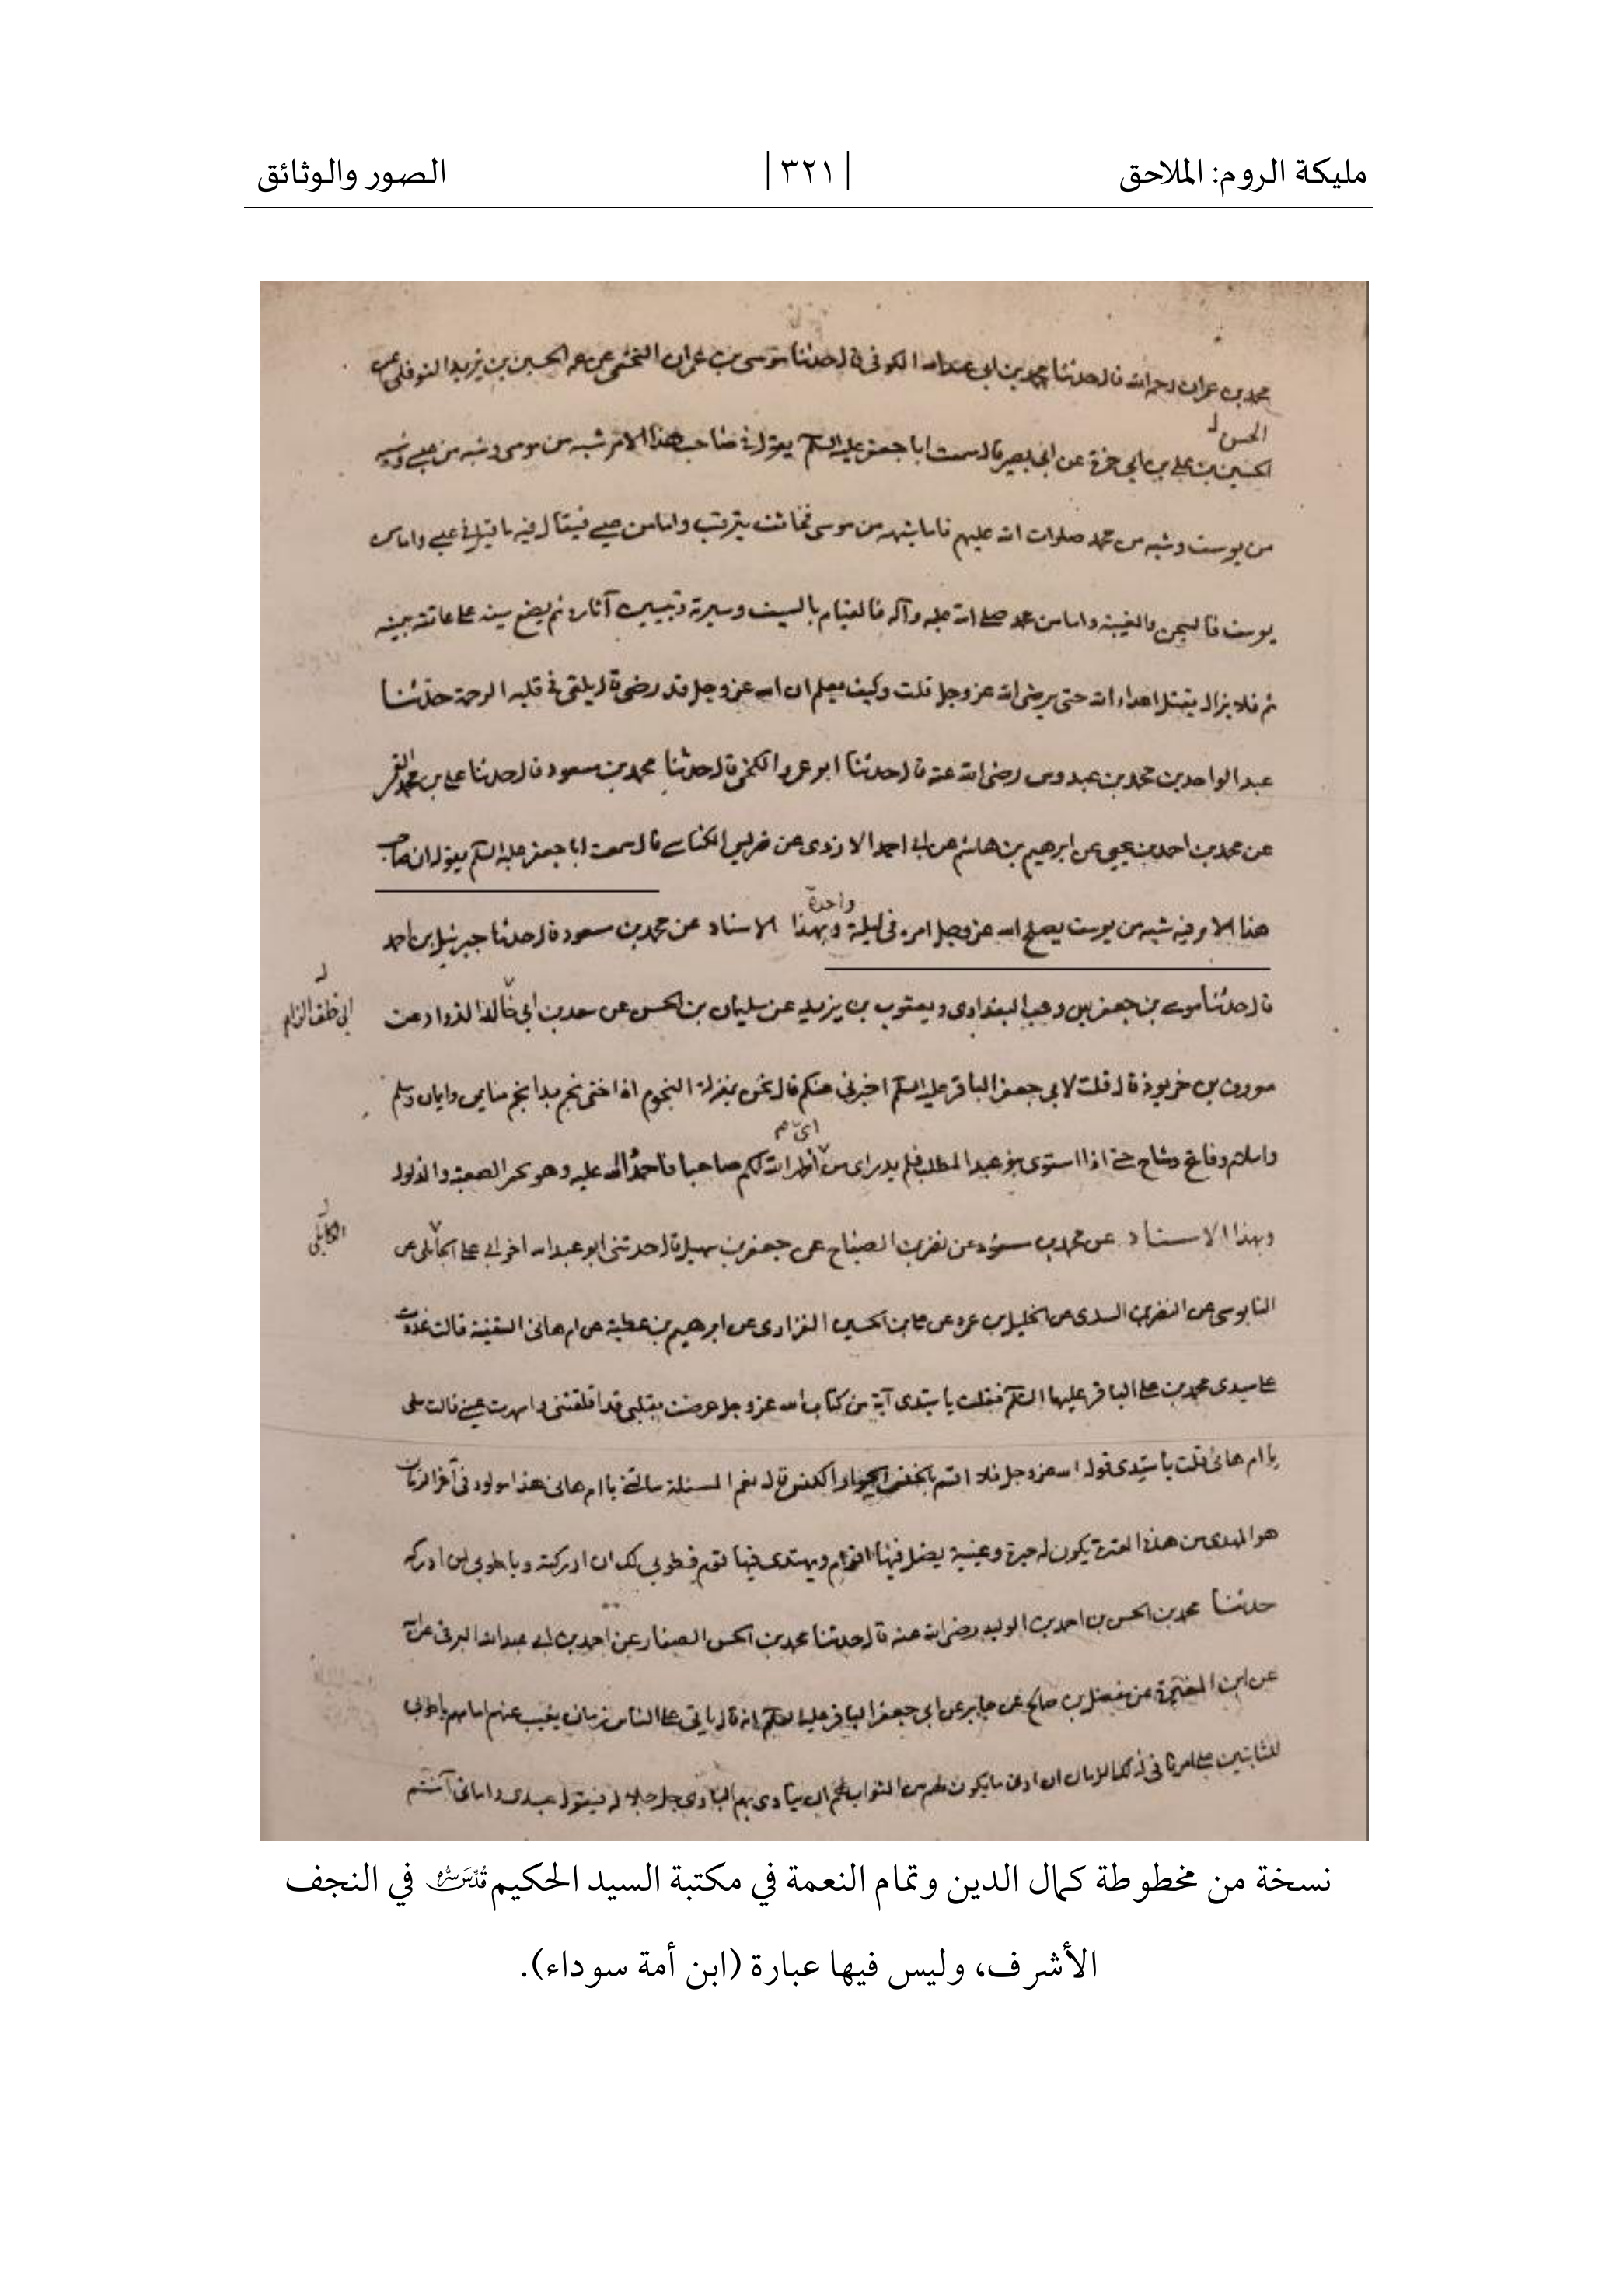 مليكة الروم: الملاحق |٣٢١| الصور والوثائق
محمد بن عمران رحمه الله قال حدثنا محمد بن ابى عبدالله الكوفى قال حدثنا موسى بن عمران النخعى عن عمه الحسين بن يزيد النوفلى عن
الحسن ل
الحسين بن على بن ابي حمزة عن ابى بصير قال سمعت ابا جعفر عليه السلم يقول فى صاحب هذا الامر شبه من موسى وشبه من عيسى وشبه
من يوسف وشبه من محمد صلوات الله عليهم فاما شبهه من موسى فخائف يترقب واما من عيسى فيقال فيه ما قيل فى عيسى واما من
يوسف فالسجن والغيبة واما من محمد صلى الله عليه وآله فالقيام بالسيف وسيرته وتبيين آثاره ثم يضع سيفه على عاتقه
ثم فلا يزال يقتل اعداء الله حتى يرضى الله عز وجل قلت وكيف يعلم ان الله عز وجل قد رضى قال يلقى فى قلبه الرحمة حدثنا
عبد الواحد بن محمد بن عبدوس رضى الله عنه قال حدثنا ابو عمرو الكشى قال حدثنا محمد بن مسعود قال حدثنا على بن محمد القمى
عن محمد بن احمد بن يحيى عن ابرهيم بن هاشم عن ابى احمد الازدى عن ضريس الكناسى قال سمعت ابا جعفر عليه السلم يقول ان صاحب
واحدة
هذا الامر فيه شبه من يوسف يصلح الله عز وجل امره فى ليلة وبهذا الاسناد عن محمد بن مسعود قال حدثنا جبرئيل بن احمد
قال حدثنا موسى بن جعفر بن وهب البغدادى ويعقوب بن يزيد عن سليمان بن الحسن عن سعد بن ابى خالد الزواد عن
ابى خلف الزام
معروف بن خربوذ قال قلت لابى جعفر الباقر عليه السلم اخبرنى عنكم قال نحن بمنزلة النجوم اذا خفى نجم بدا نجم مامن وايمان وسلم
واسلام وفاتح ومفتاح حتى اذا استوى بنو عبد المطلب فلم يدر اى من اظهر الله لكم صاحبكم فاحمدوا الله عليه وهو يخير الصعبة والذلول
اى م
وبهذا الاسناد عن محمد بن مسعود عن نصر بن الصباح عن جعفر بن سهيل قال حدثنى ابو عبدالله اخو ابى على الكابلى عن
الكابلى
القابوسى عن النضر بن السندى عن الخليل بن عمرو عن على بن الحسين الفزارى عن ابرهيم بن عطية عن ام هانئ الثقفية قالت غدوت
على سيدى محمد بن على الباقر عليهما السلم فقلت يا سيدى آية من كتاب الله عز وجل عرضت بقلبى قد اقلقتنى واسهرت عينى قال سلى
يا ام هانئ قلت يا سيدى قول الله عز وجل فلا اقسم بالخنس الجوار الكنس قال نعم المسئلة سالتنى يا ام هانئ هذا مولود فى آخر الزمان
هو المهدى من هذه العترة يكون له حيرة وغيبة يضل فيها اقوام ويهتدى فيها قوم فطوبى لك ان ادركته ويا طوبى لمن ادركه
حدثنا محمد بن الحسن بن احمد بن الوليد رضى الله عنه قال حدثنا محمد بن الحسن الصفار عن احمد بن ابى عبدالله البرقى عن ابيه
عن ابن المغيرة عن مفضل بن صالح عن جابر عن ابى جعفر الباقر عليه السلم انه قال ياتى على الناس زمان يغيب عنهم امامهم يا طوبى
للثابتين على امرنا فى ذلك الزمان ان ادنى ما يكون لهم من الثواب ان ينادى بهم البارى جل جلاله فيقول عبدى وامائى آمنتم
نسخة من مخطوطة كمال الدين وتمام النعمة في مكتبة السيد الحكيم قُدِّسَ سِرُّه في النجف
الأشرف، وليس فيها عبارة (ابن أمة سوداء).